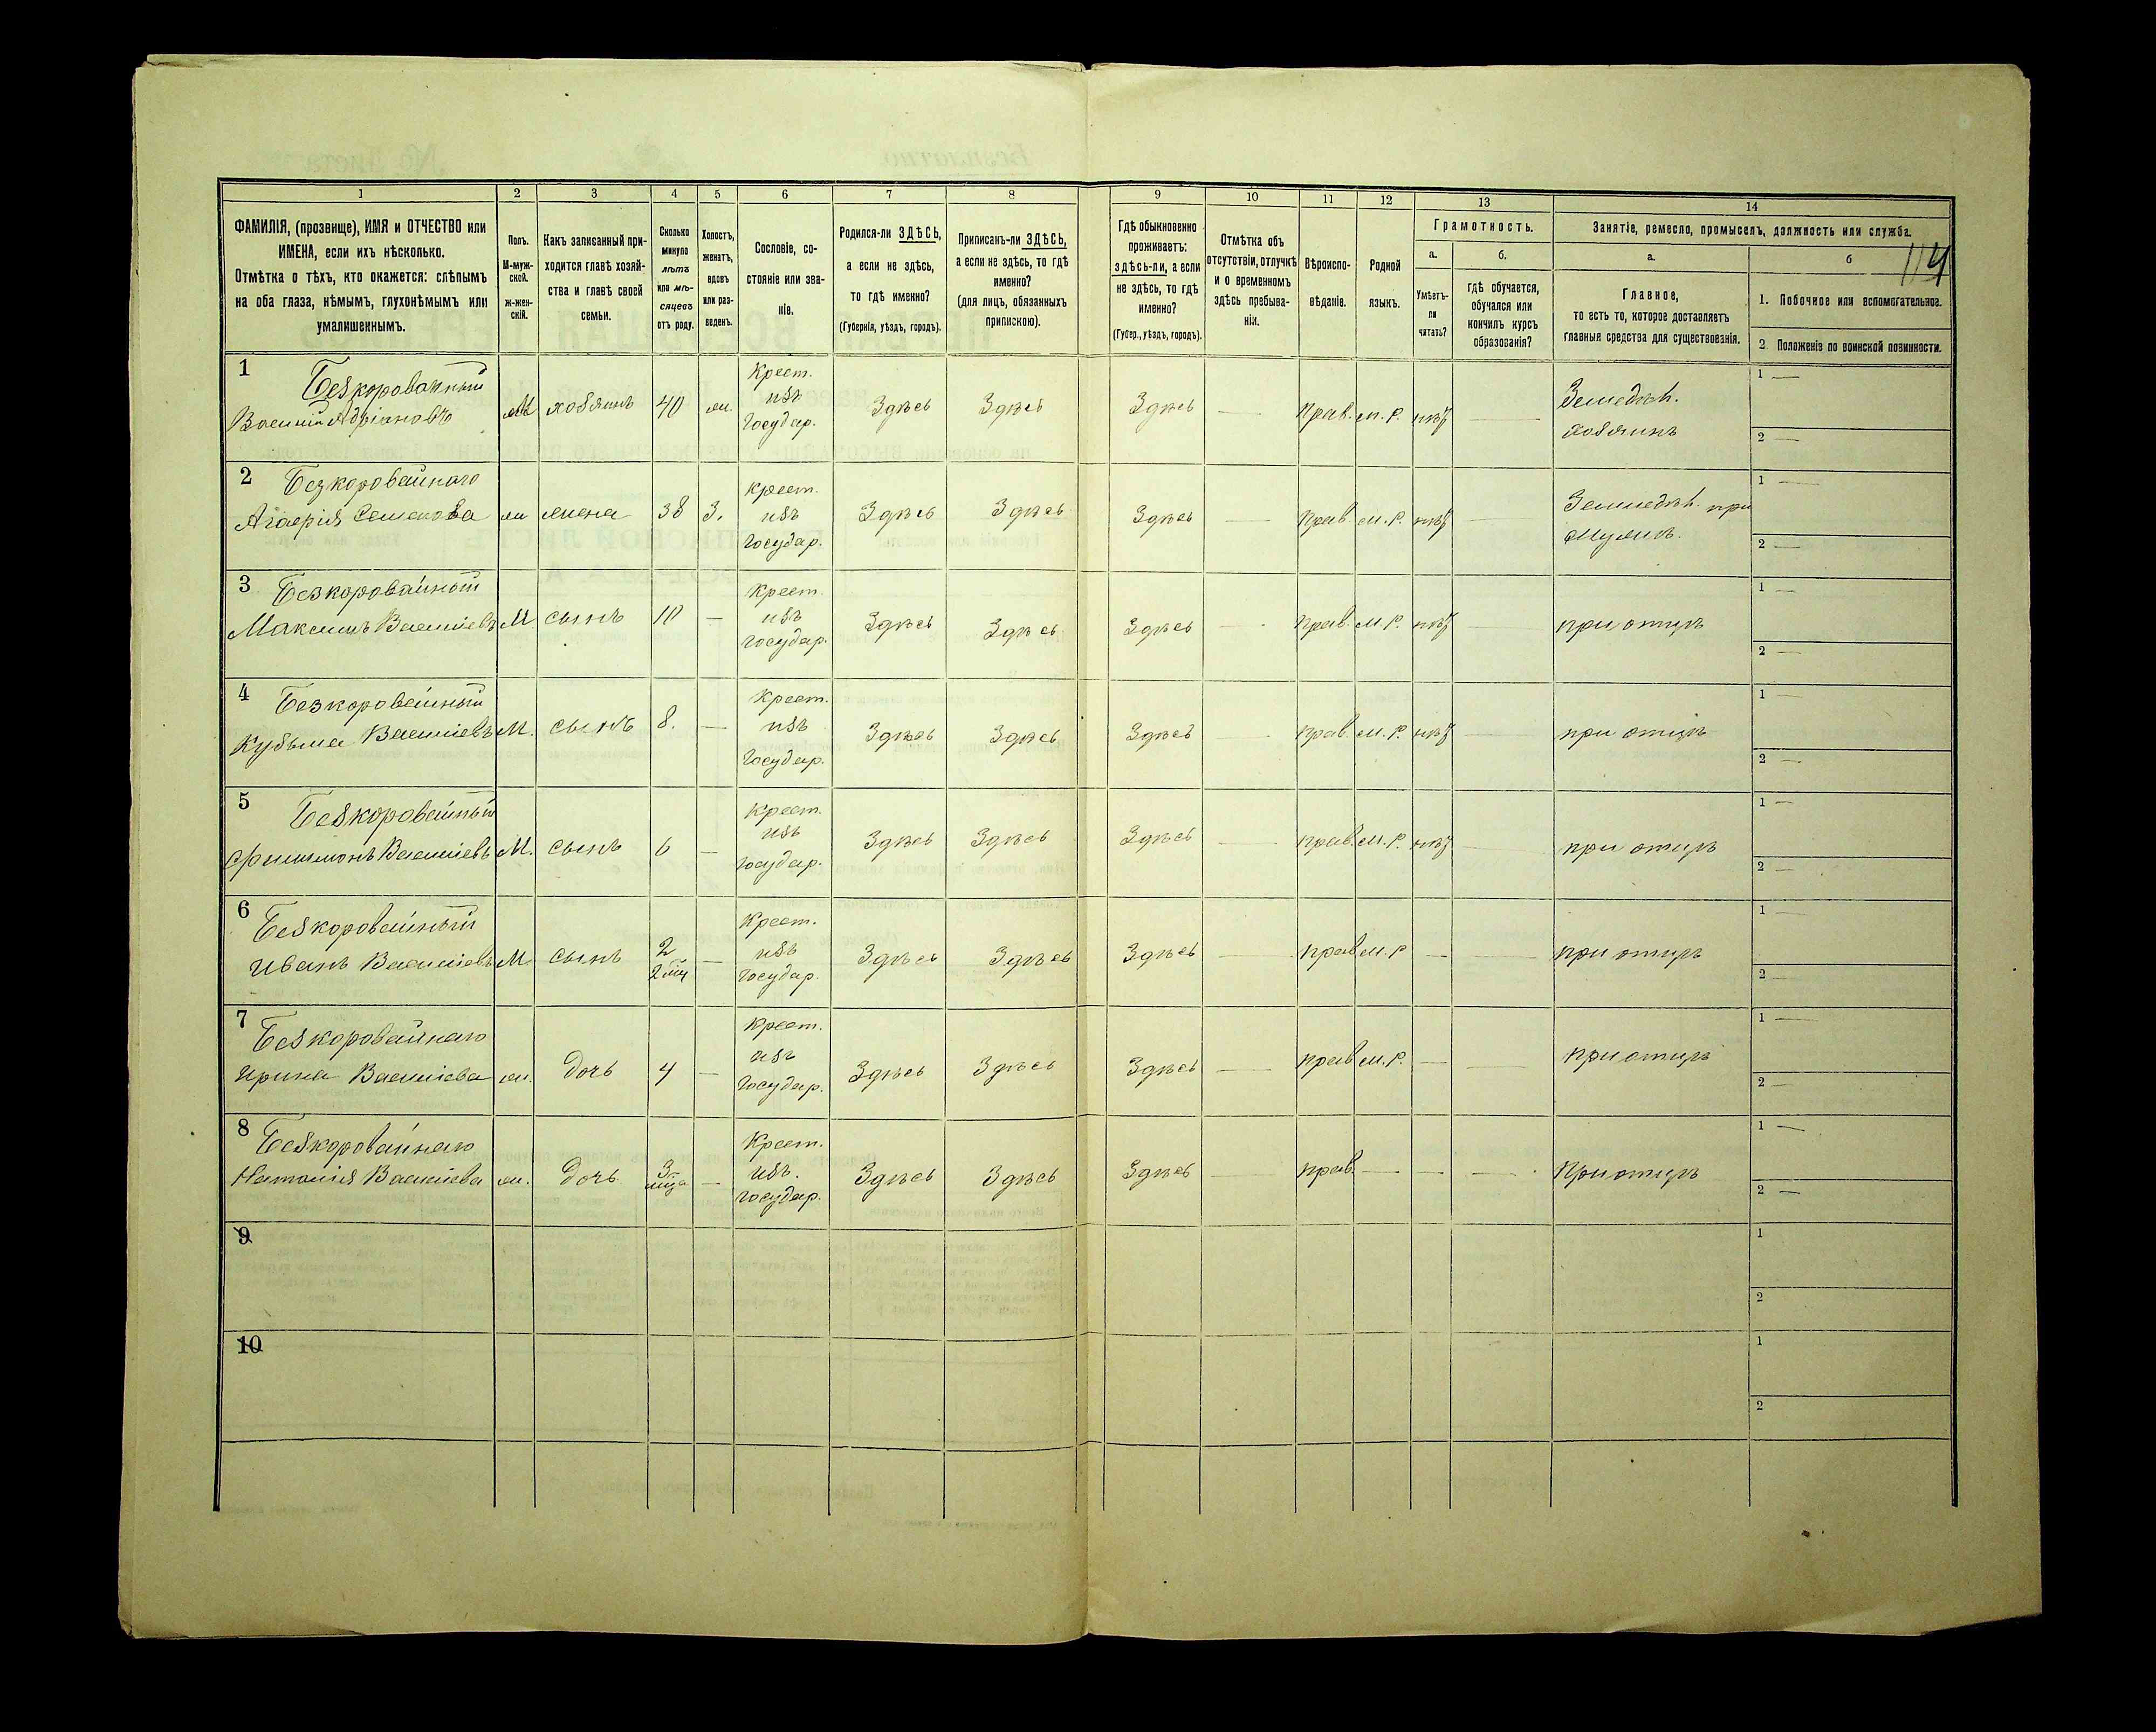 1 2 3 4 5 6 7 8 9 10 11 12 13 14
ФАМИЛІЯ, (прозвище), ИМЯ и ОТЧЕСТВО или
ИМЕНА, если ихъ нѣсколько.
Отмѣтка о тѣхъ, кто окажется: слѣпымъ
на оба глаза, нѣмымъ, глухонѣмымъ или
умалишеннымъ.
Полъ.
М-муж-
ской.
ж-жен-
скій.
Какъ записанный при-
ходится главѣ хозяй-
ства и главѣ своей
семьи.
Сколько
минуло
лѣтъ
или мѣ-
сяцевъ
отъ роду.
Холостъ,
женатъ,
вдовъ
или раз-
веденъ.
Сословіе, со-
стояніе или зва-
ніе.
Родился-ли ЗДѢСЬ,
а если не здѣсь,
то гдѣ именно?
(Губернія, уѣздъ, городъ).
Приписанъ-ли ЗДѢСЬ,
а если не здѣсь, то гдѣ
именно?
(для лицъ, обязанныхъ
припискою).
Гдѣ обыкновенно
проживаетъ:
здѣсь-ли, а если
не здѣсь, то гдѣ
именно?
(Губер., уѣздъ, городъ).
Отмѣтка объ
отсутствіи, отлучкѣ
и о временномъ
здѣсь пребыва-
ніи.
Вѣроиспо-
вѣданіе.
Родной
языкъ.
Грамотность.
а. б.
Умѣетъ-
ли
читать?
гдѣ обучается,
обучался или
кончилъ курсъ
образованія?
Занятіе, ремесло, промыселъ, должность или служба.
а. б
114
Главное,
то есть то, которое доставляетъ
главныя средства для существованія.
1. Побочное или вспомогательное.
2 Положеніе по воинской повинности.
1 Безкоровайный Крест. 1 —
Василій Адріановъ М хозяинъ 40 ж. изъ Здѣсь Здѣсь Здѣсь — прав. м. р. нѣт — Земледѣл.
Государ. хозяинъ 2 —
2 Безкоровайнаго Крест. 1 —
Агафія Семенова ж жена 38 З. изъ Здѣсь Здѣсь Здѣсь — прав. м. р. нѣт — Земледѣл. при
Государ. мужѣ. 2 —
3 Безкоровайный Крест. 1 —
Максимъ Васильевъ М сынъ 10 — изъ Здѣсь Здѣсь Здѣсь — прав. м. р. нѣт — при отцѣ
государ. 2 —
4 Безкоровайный Крест. 1 —
Кузьма Васильевъ М. сынъ 8. — изъ Здѣсь Здѣсь Здѣсь — прав. м. р. нѣт — при отцѣ
Государ. 2 —
5 Безкоровайный Крест. 1 —
Филимонъ Васильевъ М. сынъ 6 — изъ Здѣсь Здѣсь Здѣсь — прав. м. р. нѣт — при отцѣ
государ. 2 —
6 Безкоровайный Крест. 1 —
Иванъ Васильевъ М. сынъ 2 — изъ Здѣсь Здѣсь Здѣсь — прав м. р — — при отцѣ
Государ. 2 —
7 Безкоровайнаго Крест. 1 —
Ирина Васильева ж. дочь 4 — изъ Здѣсь Здѣсь Здѣсь — прав м. р. — — при отцѣ
Государ. 2 —
8 Безкоровайнаго Крест. 1 —
Наталія Васильева ж. дочь 3 — изъ Здѣсь Здѣсь Здѣсь — прав. — — — При отцѣ
мца Государ. 2 —
9 1
2
10 1
2